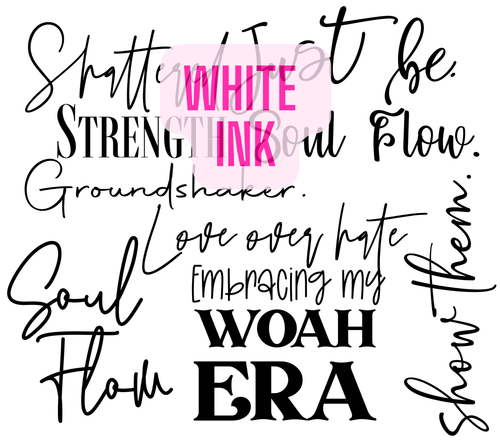 Shattered Just be.
WHITE
INK
STRENGTH Soul Flow.
Groundshaker.
Love over hate
Embracing my
WOAH
ERA
Soul
Flow
show them.